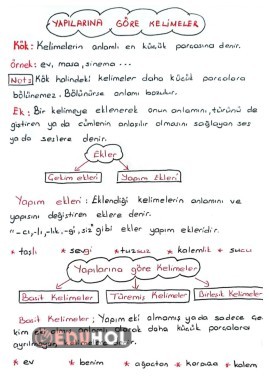 YAPILARINA GÖRE KELİMELER
Kök: Kelimelerin anlamlı en küçük parçasına denir.
Örnek: ev, masa, sinema ...
Not: Kök halindeki kelimeler daha küçük parçalara
bölünemez. Bölünürse anlamı bozulur.
Ek: Bir kelimeye eklenerek onun anlamını, türünü de
ğiştiren ya da cümlenin anlaşılır olmasını sağlayan ses
ya da seslere denir.
Ekler
Çekim ekleri
Yapım Ekleri
Yapım ekleri: Eklendiği kelimelerin anlamını ve
yapısını değiştiren eklere denir.
"-cı, -lı, -lık, -gi, siz" gibi ekler yapım ekleridir.
* taşlı * sevgi * tuzsuz * kalemlik * sucu
Yapılarına göre Kelimeler
Basit Kelimeler
Türemiş Kelimeler
Birleşik Kelimeler
Basit Kelimeler: Yapım eki almamış ya da sadece çe
kim daha küçük parçalara
ayrılmayan denir.
* ev * benim * ağaçtan * * kalem